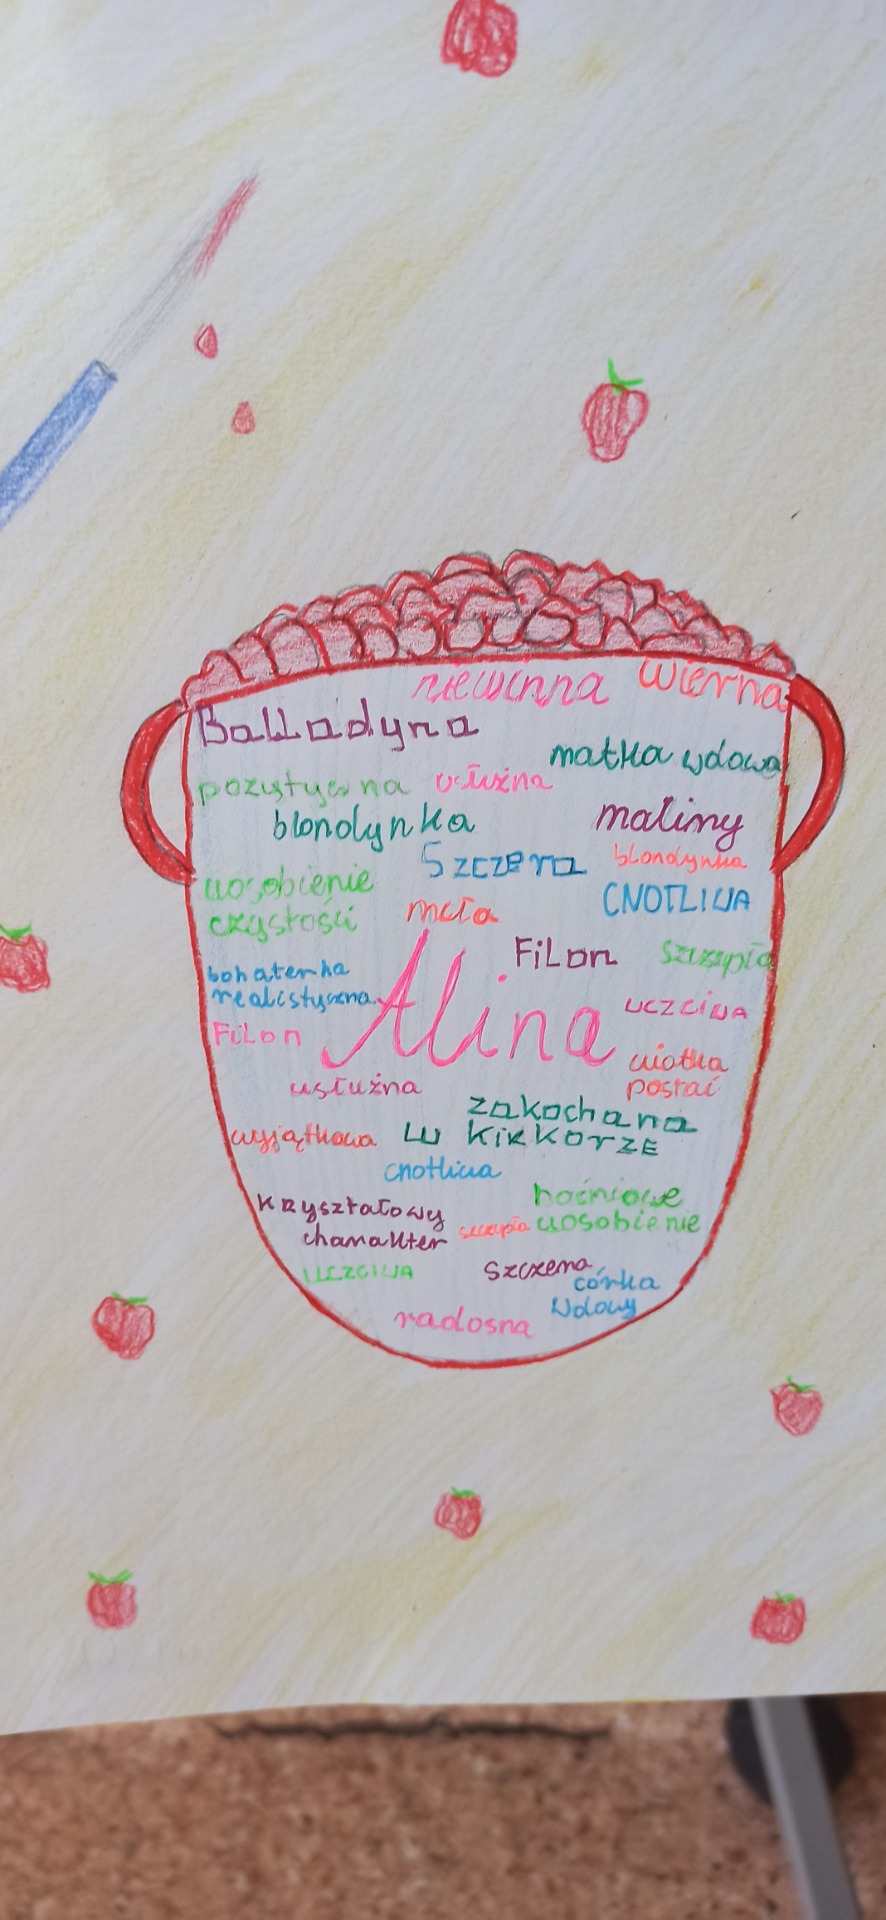 niewinna wierna
Balladyna
matka wdowa
pozytywna usłużna
blondynka maliny
Szczera blondynka
uosobienie CNOTLIWA
czystości miła
FiLon szczupła
bohaterka
realistyczna
Alina uczciwa
FiLon wiotka
usłużna postać
zakochana
wyjątkowa w KiRKORZE
cnotliwa
baśniowe
Kryształowy uosobienie
charakter szczupła
UCZCIWA szczera
córka
radosna wdowy